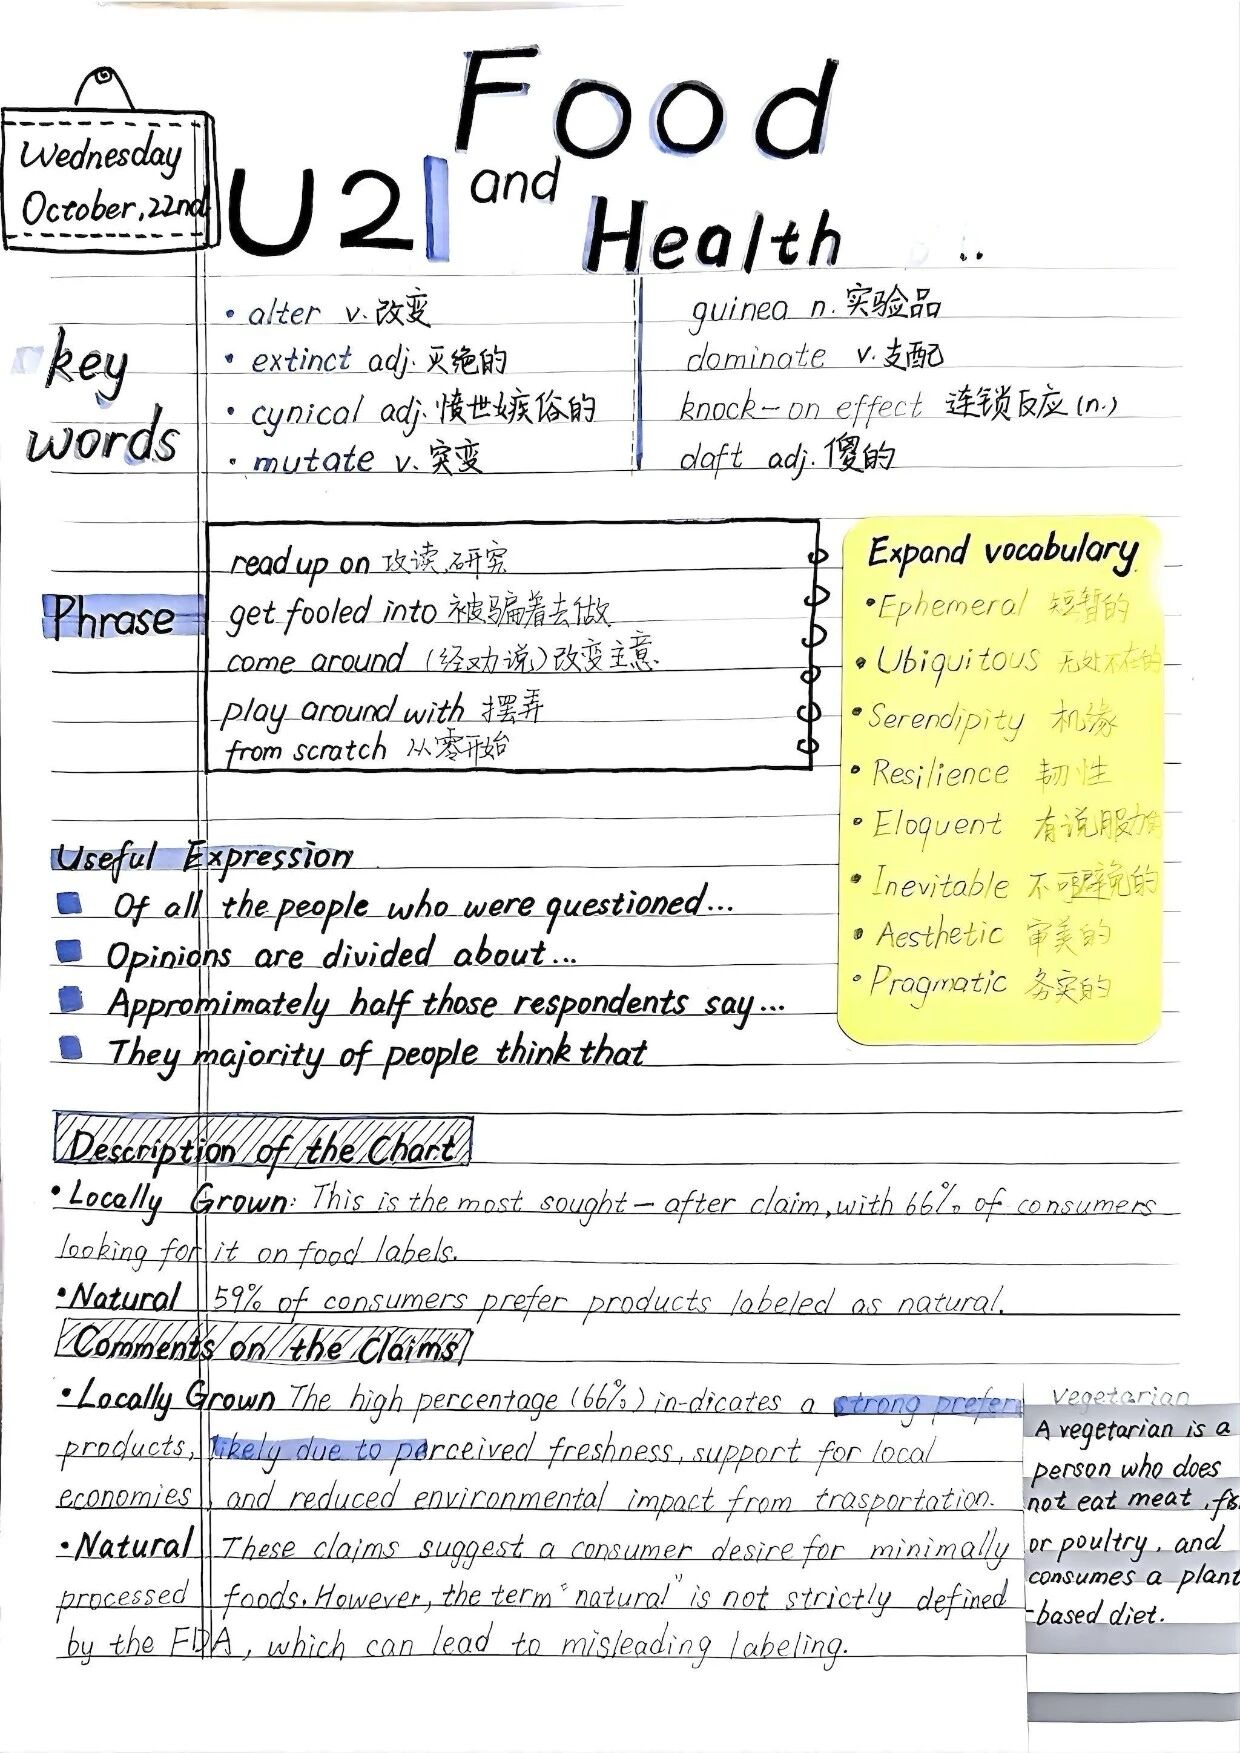 Food
Wednesday
October,22nd
U2
and
Health
key
words
• alter v.改变
• extinct adj.灭绝的
• cynical adj.愤世嫉俗的
• mutate v.突变
guinea n.实验品
dominate v.支配
knock-on effect 连锁反应(n.)
daft adj.傻的
Phrase
read up on 攻读.研究
get fooled into 被骗着去做
come around (经劝说)改变主意.
play around with 摆弄
from scratch 从零开始
Expand vocabulary
•Ephemeral 短暂的
•Ubiquitous 无处不在的
•Serendipity 机缘
•Resilience 韧性
•Eloquent 有说服力的
•Inevitable 不可避免的
•Aesthetic 审美的
•Pragmatic 务实的
Useful Expression
Of all the people who were questioned...
Opinions are divided about...
Appromimately half those respondents say...
They majority of people think that
Description of the Chart
•Locally Grown: This is the most sought-after claim, with 66% of consumers
looking for it on food labels.
•Natural 59% of consumers prefer products labeled as natural.
Comments on the Claims
•Locally Grown The high percentage (66%) in-dicates a strong prefer
products, likely due to perceived freshness, support for local
economies, and reduced environmental impact from trasportation.
•Natural These claims suggest a consumer desire for minimally
processed foods. However, the term "natural" is not strictly defined
by the FDA, which can lead to misleading labeling.
vegetarian
A vegetarian is a
person who does
not eat meat,
or poultry, and
consumes a plant
-based diet.